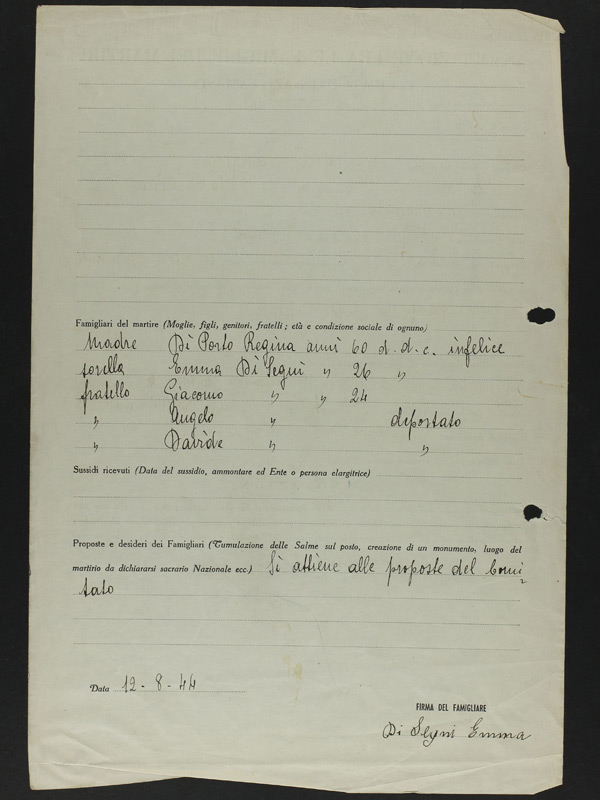 Famigliari del martire (Moglie, figli, genitori, fratelli ; età e condizione sociale di ognuno)
Madre Di Porto Regina anni 60 d. d. c. infelice
sorella Emma Di Segni " 26 "
fratello Giacomo " " 24
" Angelo " deportato
" Davide " "
Sussidi ricevuti (Data del sussidio, ammontare ed Ente o persona elargitrice)
Proposte e desideri dei Famigliari (Tumulazione delle Salme sul posto, creazione di un monumento, luogo del
martirio da dichiararsi sacrario Nazionale ecc.) Si attiene alle proposte del Comi
tato
Data 12 - 8 - 44
FIRMA DEL FAMIGLIARE
Di Segni Emma